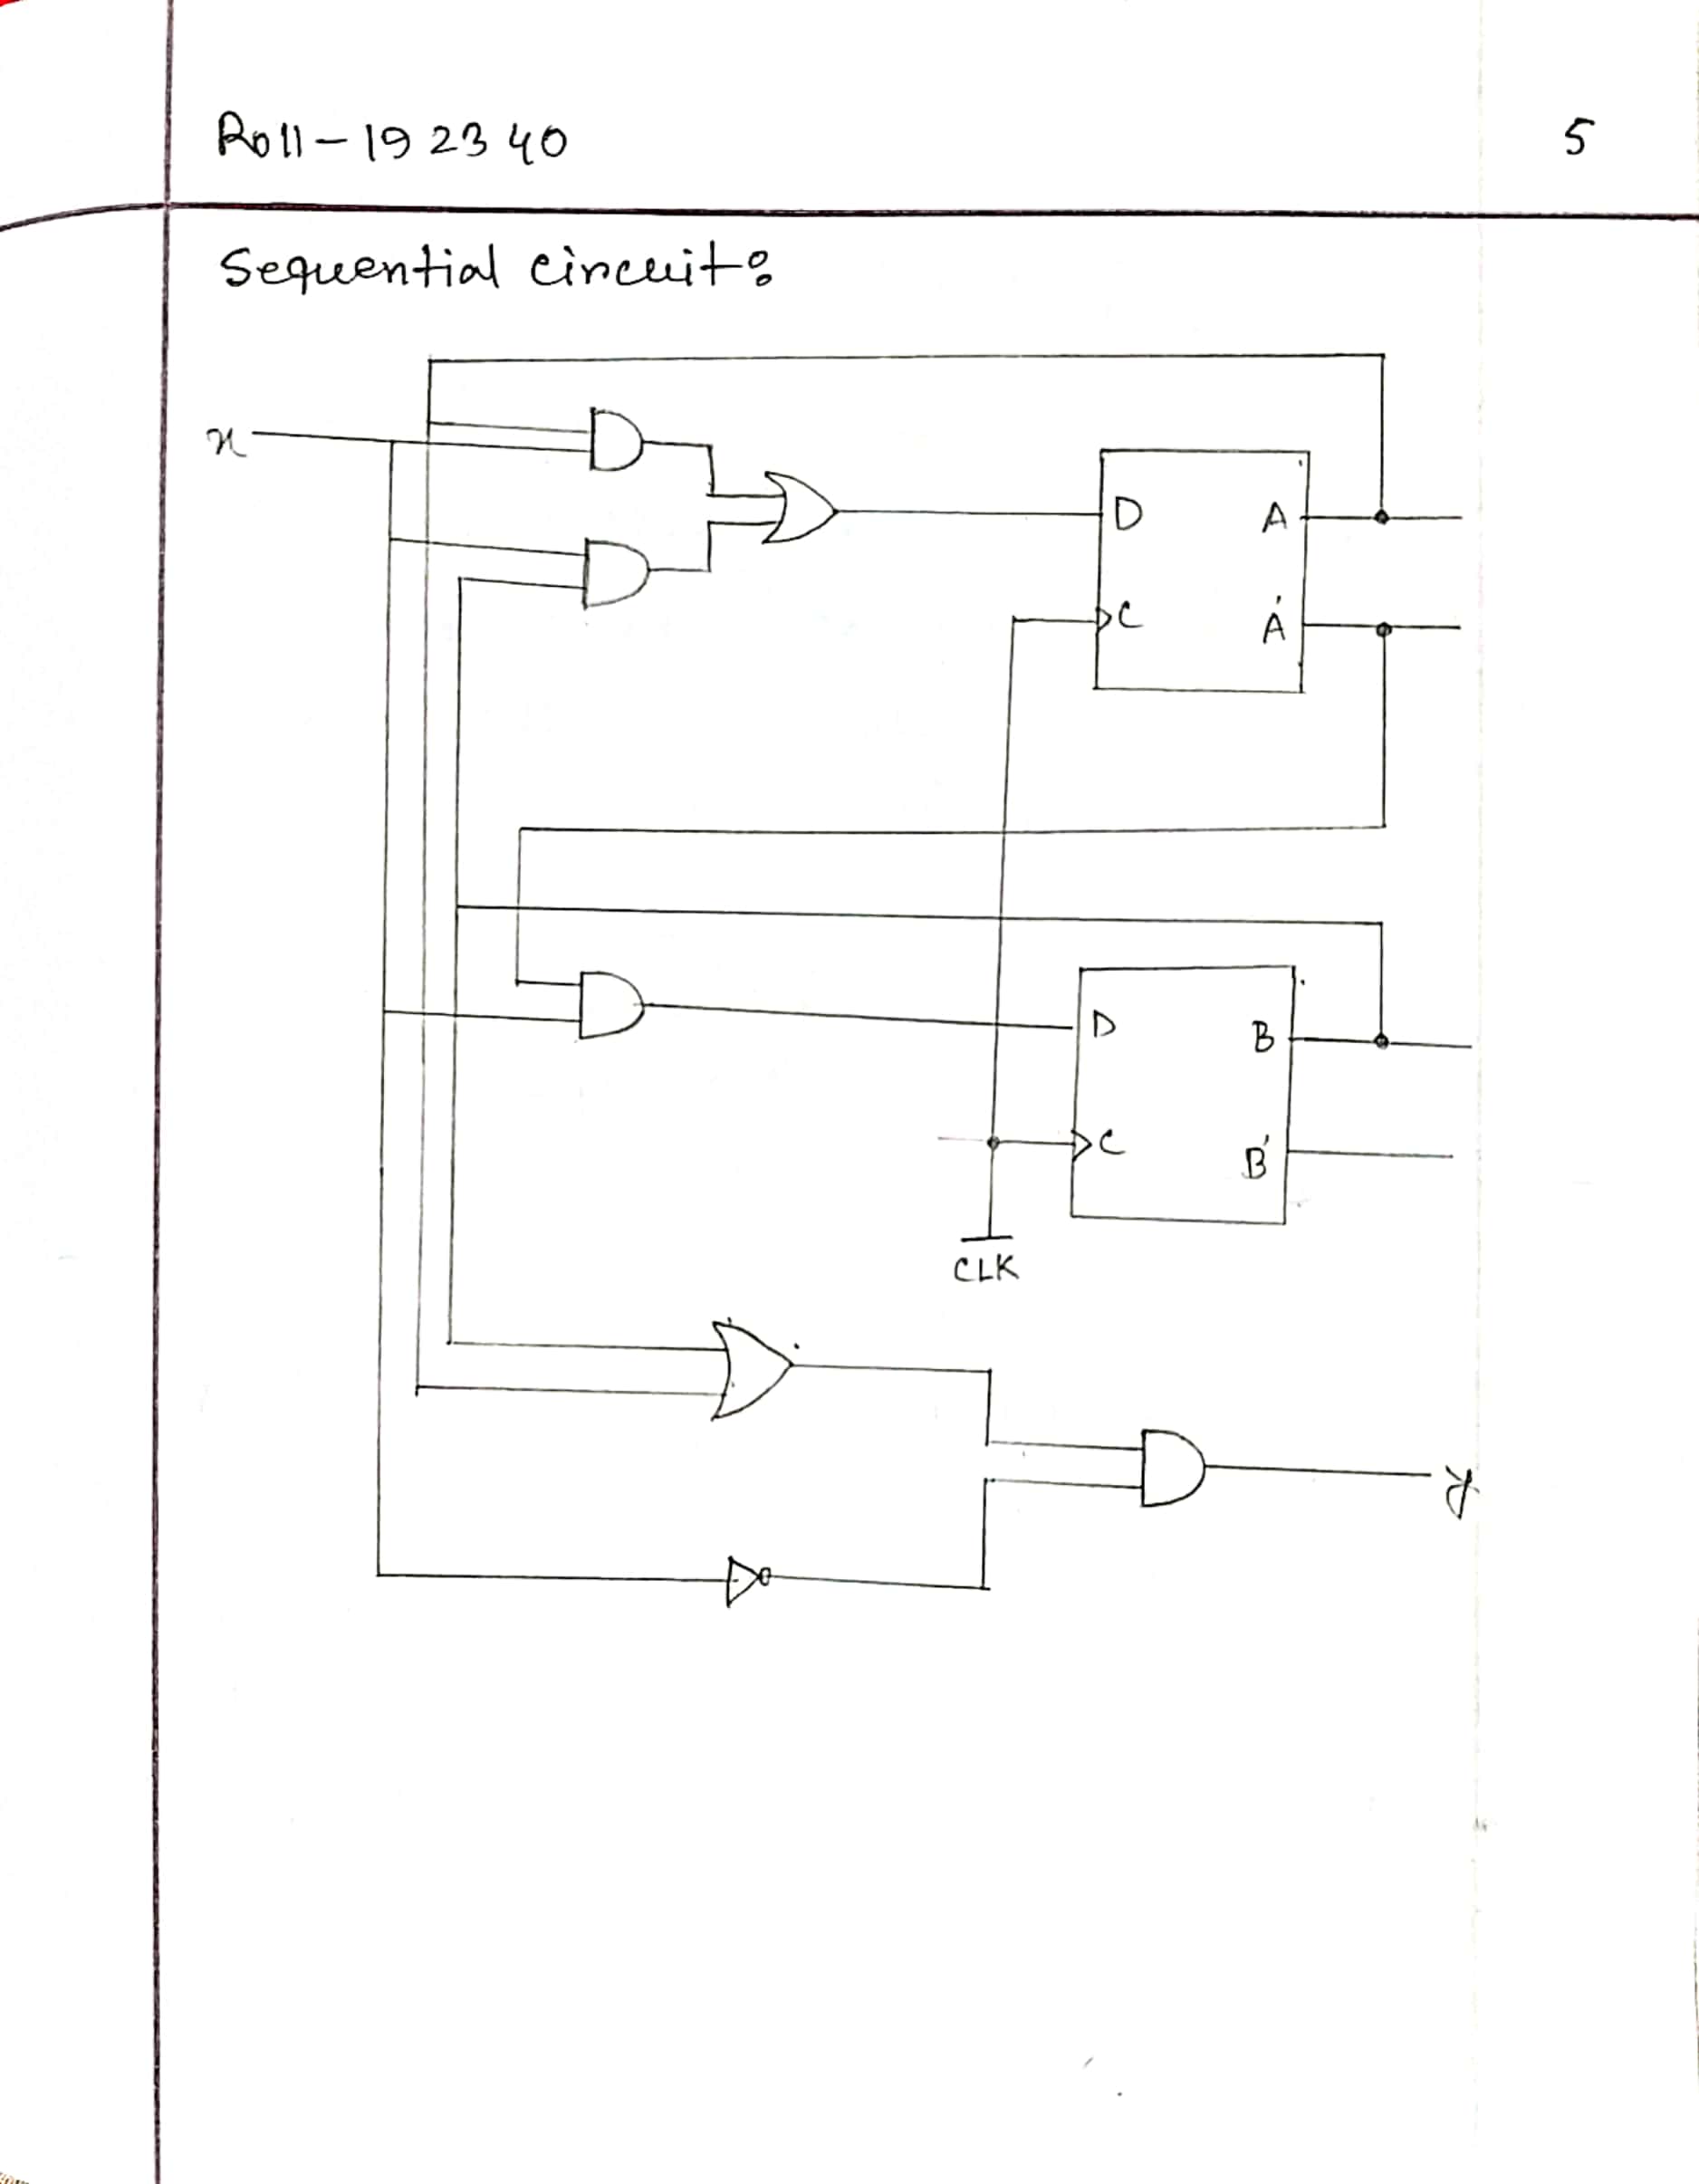 Roll-192340
5
Sequential circuit:
x
D A
C A'
D B
C B'
CLK
y